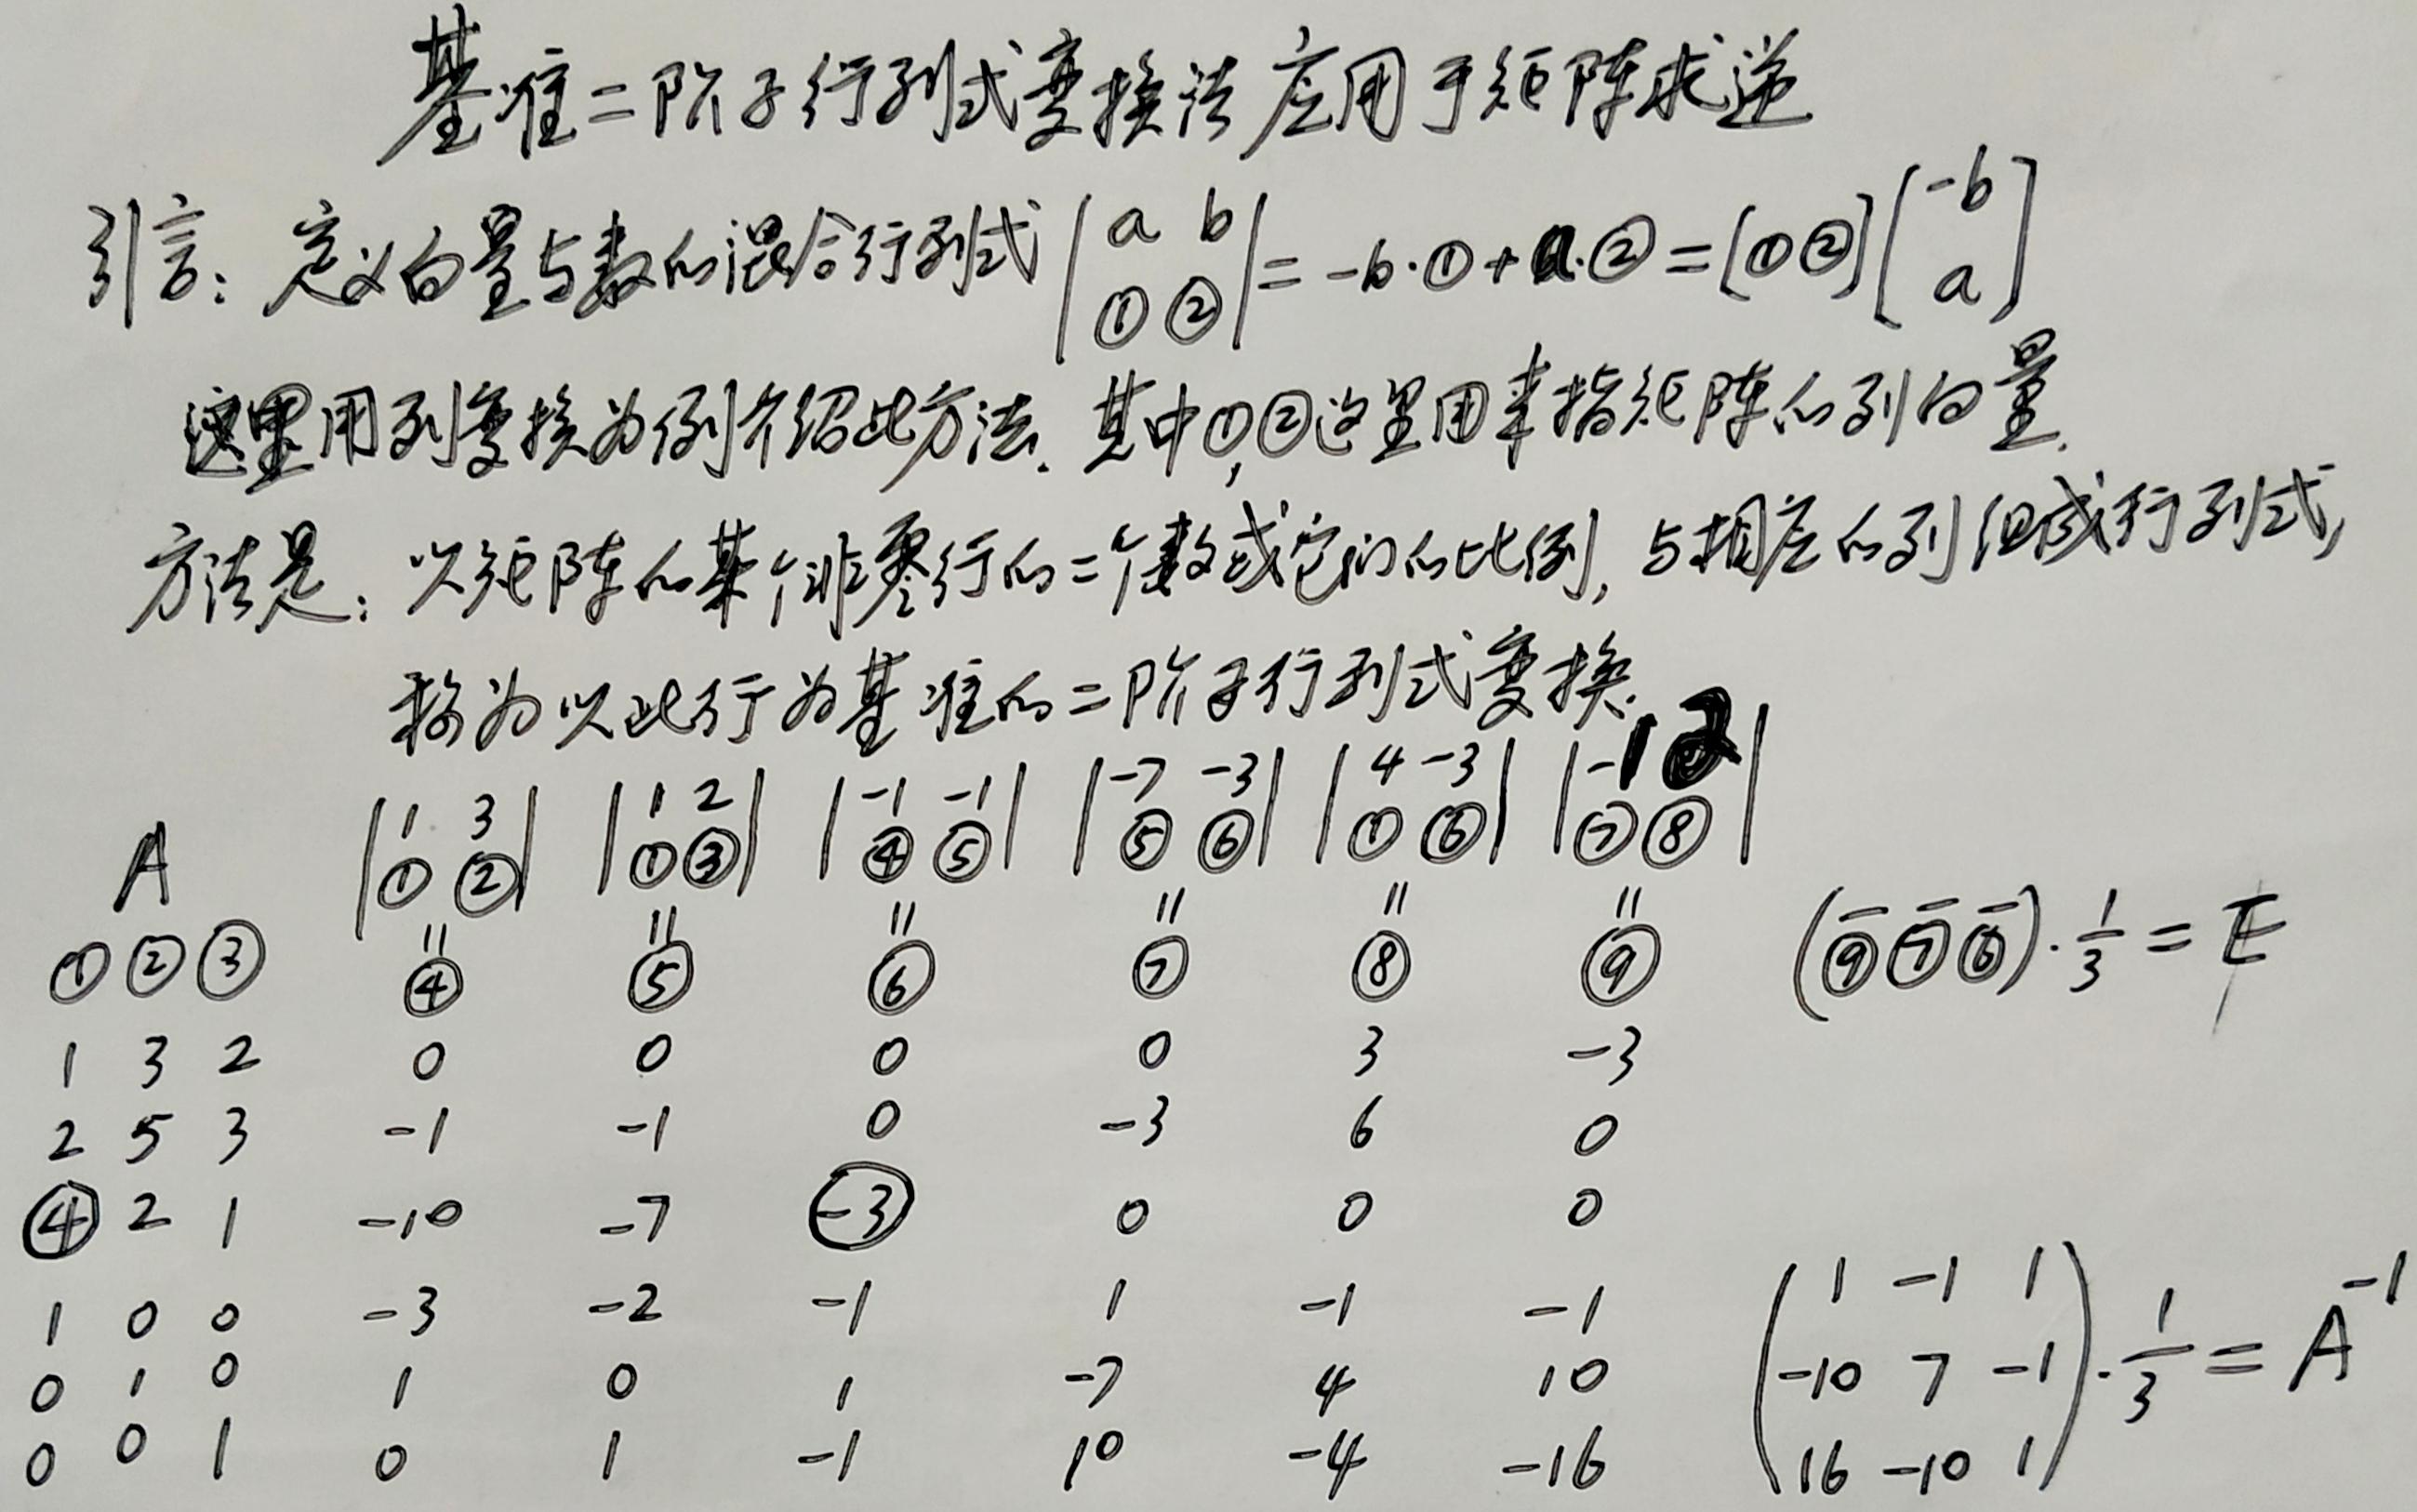 基准二阶子行列式变换法应用于矩阵求逆
引言: 定义向量与数的混合行列式 |a b; ① ②| = -b·①+a·② = [① ②][-b; a]
这里用列变换为例介绍此方法. 其中①,②这里用来指矩阵的列向量.
方法是: 以矩阵的某个非零行的二个数或它们的比例, 与相应的列组成行列式,
称为以此行为基准的二阶子行列式变换.
A |1 3; ① ②| |1 2; ① ③| |-1 -1; ④ ⑤| |-7 -3; ⑤ ⑥| |4 -3; ① ⑥| |-1 2; ⑦ ⑧|
= = = = = =
① ② ③ ④ ⑤ ⑥ ⑦ ⑧ ⑨ (-⑨ -⑦ -⑥)·1/3 = E
1 3 2 0 0 0 0 3 -3
2 5 3 -1 -1 0 -3 6 0
④ 2 1 -10 -7 -3 0 0 0
1 0 0 -3 -2 -1 1 -1 -1 1 -1 1
0 1 0 1 0 1 -7 4 10 (-10 7 -1)·1/3 = A^-1
0 0 1 0 1 -1 10 -4 -16 16 -10 1